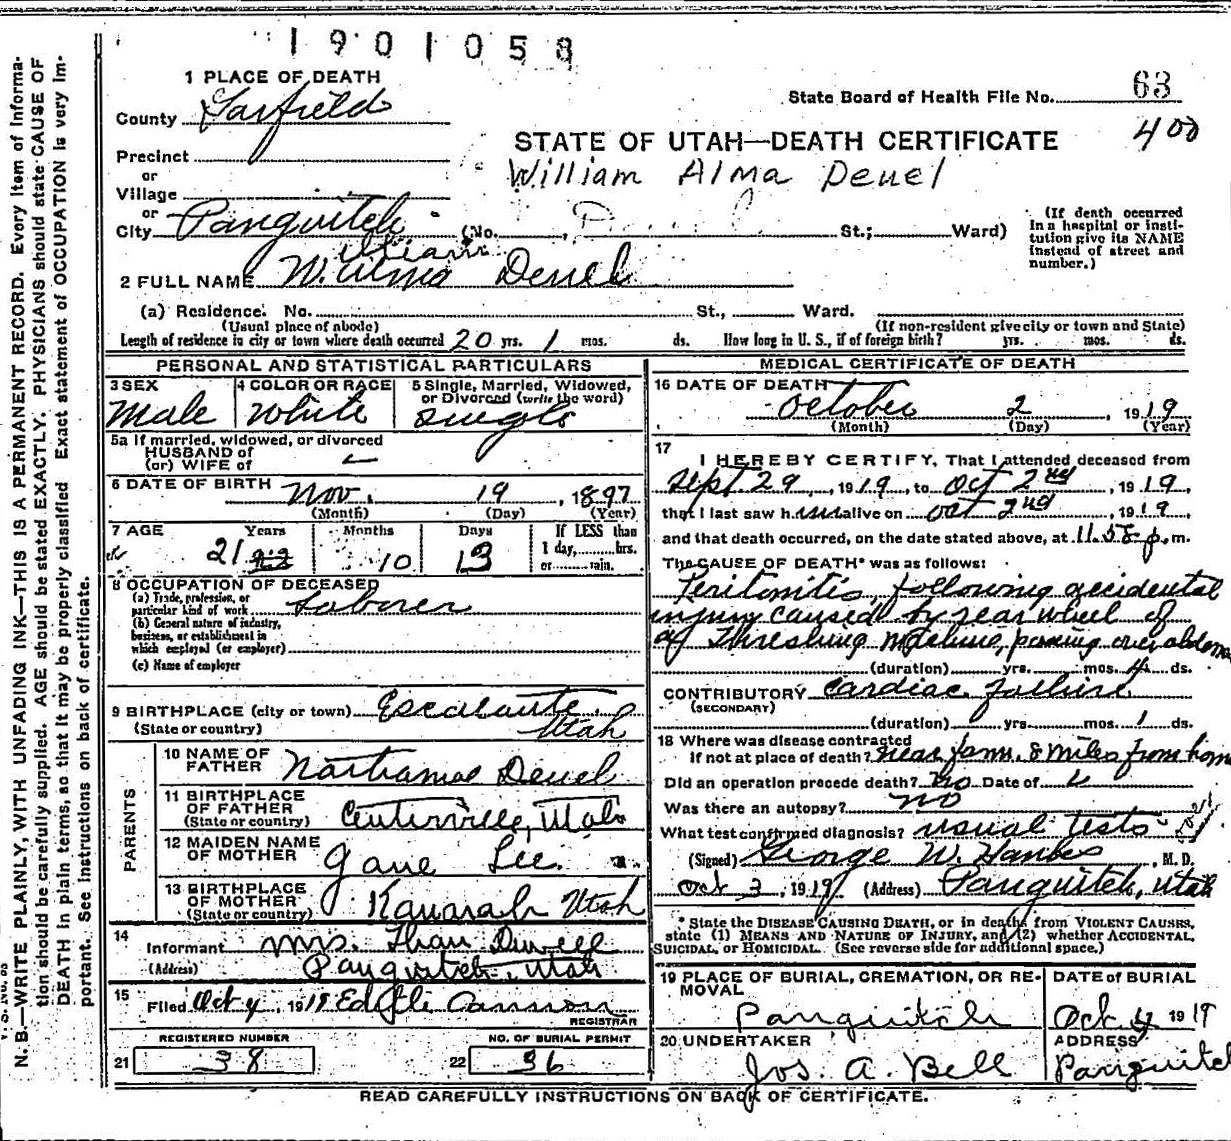 1901058
1 PLACE OF DEATH
County Garfield
State Board of Health File No. 63
400
Precinct
STATE OF UTAH—DEATH CERTIFICATE
or
Village
William Alma Deuel
or
City Panguitch (No. , St.; Ward)
(If death occurred in a hospital or institution give its NAME instead of street and number.)
William
2 FULL NAME W. Alma Deuel
(a) Residence. No. St., Ward.
(Usual place of abode) (If non-resident give city or town and State)
Length of residence in city or town where death occurred 20 yrs. 1 mos. ds. How long in U. S., if of foreign birth? yrs. mos. ds.
PERSONAL AND STATISTICAL PARTICULARS
3 SEX Male
4 COLOR OR RACE White
5 Single, Married, Widowed, or Divorced (write the word) Single
5a If married, widowed, or divorced
HUSBAND of
(or) WIFE of
6 DATE OF BIRTH Nov. 19, 1897
(Month) (Day) (Year)
7 AGE Years Months Days If LESS than
21 22 10 13 1 day,.....hrs.
or.....min.
8 OCCUPATION OF DECEASED
(a) Trade, profession, or
particular kind of work Laborer
(b) General nature of industry,
business, or establishment in
which employed (or employer)
(c) Name of employer
9 BIRTHPLACE (city or town) Escalante,
(State or country) Utah
PARENTS
10 NAME OF
FATHER Deuel
11 BIRTHPLACE
OF FATHER
(State or country) Centerville, Utah
12 MAIDEN NAME
OF MOTHER Jane Lee
13 BIRTHPLACE
OF MOTHER
(State or country) Kanarah Utah
14
Informant Mrs. Than
(Address) Panguitch, Utah
15
Filed Oct 4, 1919 Cannon
REGISTRAR
REGISTERED NUMBER NO. OF BURIAL PERMIT
21 38 22 36
MEDICAL CERTIFICATE OF DEATH
16 DATE OF DEATH
October 2, 1919
(Month) (Day) (Year)
17
I HEREBY CERTIFY, That I attended deceased from
Sept 29, 1919, to Oct 2nd, 1919,
that I last saw him alive on Oct 2nd, 1919
and that death occurred, on the date stated above, at 11.58 p.m.
The CAUSE OF DEATH* was as follows:
Peritonitis, following accidental
injury caused by rear wheel of
of Threshing Machine, passing over abdomen
(duration) yrs. mos. 4 ds.
CONTRIBUTORY Cardiac failure
(SECONDARY)
(duration) yrs. mos. 1 ds.
18 Where was disease contracted
if not at place of death? near farm. 8 miles from home
Did an operation precede death? No Date of
Was there an autopsy? No
What test confirmed diagnosis? usual tests
(Signed) George W. , M. D.
Oct 3, 1919 (Address) Panguitch, Utah
* State the DISEASE CAUSING DEATH, or in deaths from VIOLENT CAUSES,
state (1) MEANS AND NATURE OF INJURY, and (2) whether ACCIDENTAL,
SUICIDAL, or HOMICIDAL. (See reverse side for additional space.)
19 PLACE OF BURIAL, CREMATION, OR REMOVAL
Panguitch
DATE OF BURIAL
Oct 4 1919
20 UNDERTAKER
Jos. A. Bell
ADDRESS
Panguitch
READ CAREFULLY INSTRUCTIONS ON BACK OF CERTIFICATE.
N. B.—WRITE PLAINLY, WITH UNFADING INK—THIS IS A PERMANENT RECORD. Every item of informa-
tion should be carefully supplied. AGE should be stated EXACTLY. PHYSICIANS should state CAUSE OF
DEATH in plain terms, so that it may be properly classified. Exact statement of OCCUPATION is very im-
portant. See instructions on back of certificate.